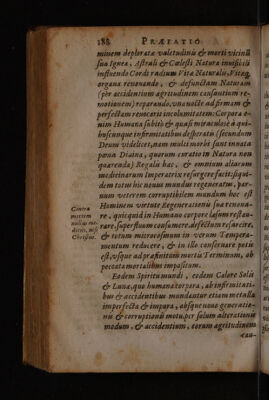 188 PRÆFATIO
minem deplorata valetudinis & morti vicinũ
sua Ignea, Astrali & Cælesti Natura invisibili
influendo Cordi radium Vitæ Naturalis, Vitæq́;
organa renovando, & defunctam Naturam
(per accidentium ægritudinem causantium re-
motionem) reparando, una nocte ad firmam &
perfectam removerit incolumitatem: Corpora e-
nim Humana subitò & quasi miraculosè à qui-
buscunque infirmitatibus desperatis (secundum
Deum videlicet, nam multi morbi sunt innata
pœna Divina, quorum curatio in Natura non
quærenda) Regali hac, & omnium aliarum
medicinarum Imperatrix resurgere facit; siqui-
dem totus hic novus mundus regeneratus, par-
vum veterem corruptibilem mundum hoc est
Hominem virtute Regenerationis suæ renova-
re, quicquid in Humano corpore læsum restau-
rare, superfluum consumere, defectum resarcire,
& totum microcosmum in verum Tempera-
mentum reducere, & in illo conservare potis
est, usque ad præfinitum mortis Terminum, ab
peccata mortalibus impositum.
Contra
mortem
nullus me-
dicus, nisi
Christus.
Eodem Spiritu mundi, eodem Calore Solis
& Luna, quo humana corpora, ab infirmitati-
bus & accidentibus mundantur etiam metalla
imperfecta & impura, absque novo generatio-
nis & corruptionis motu, per solum alterationis
modum, & accidentium, eorum ægritudinem
cau-